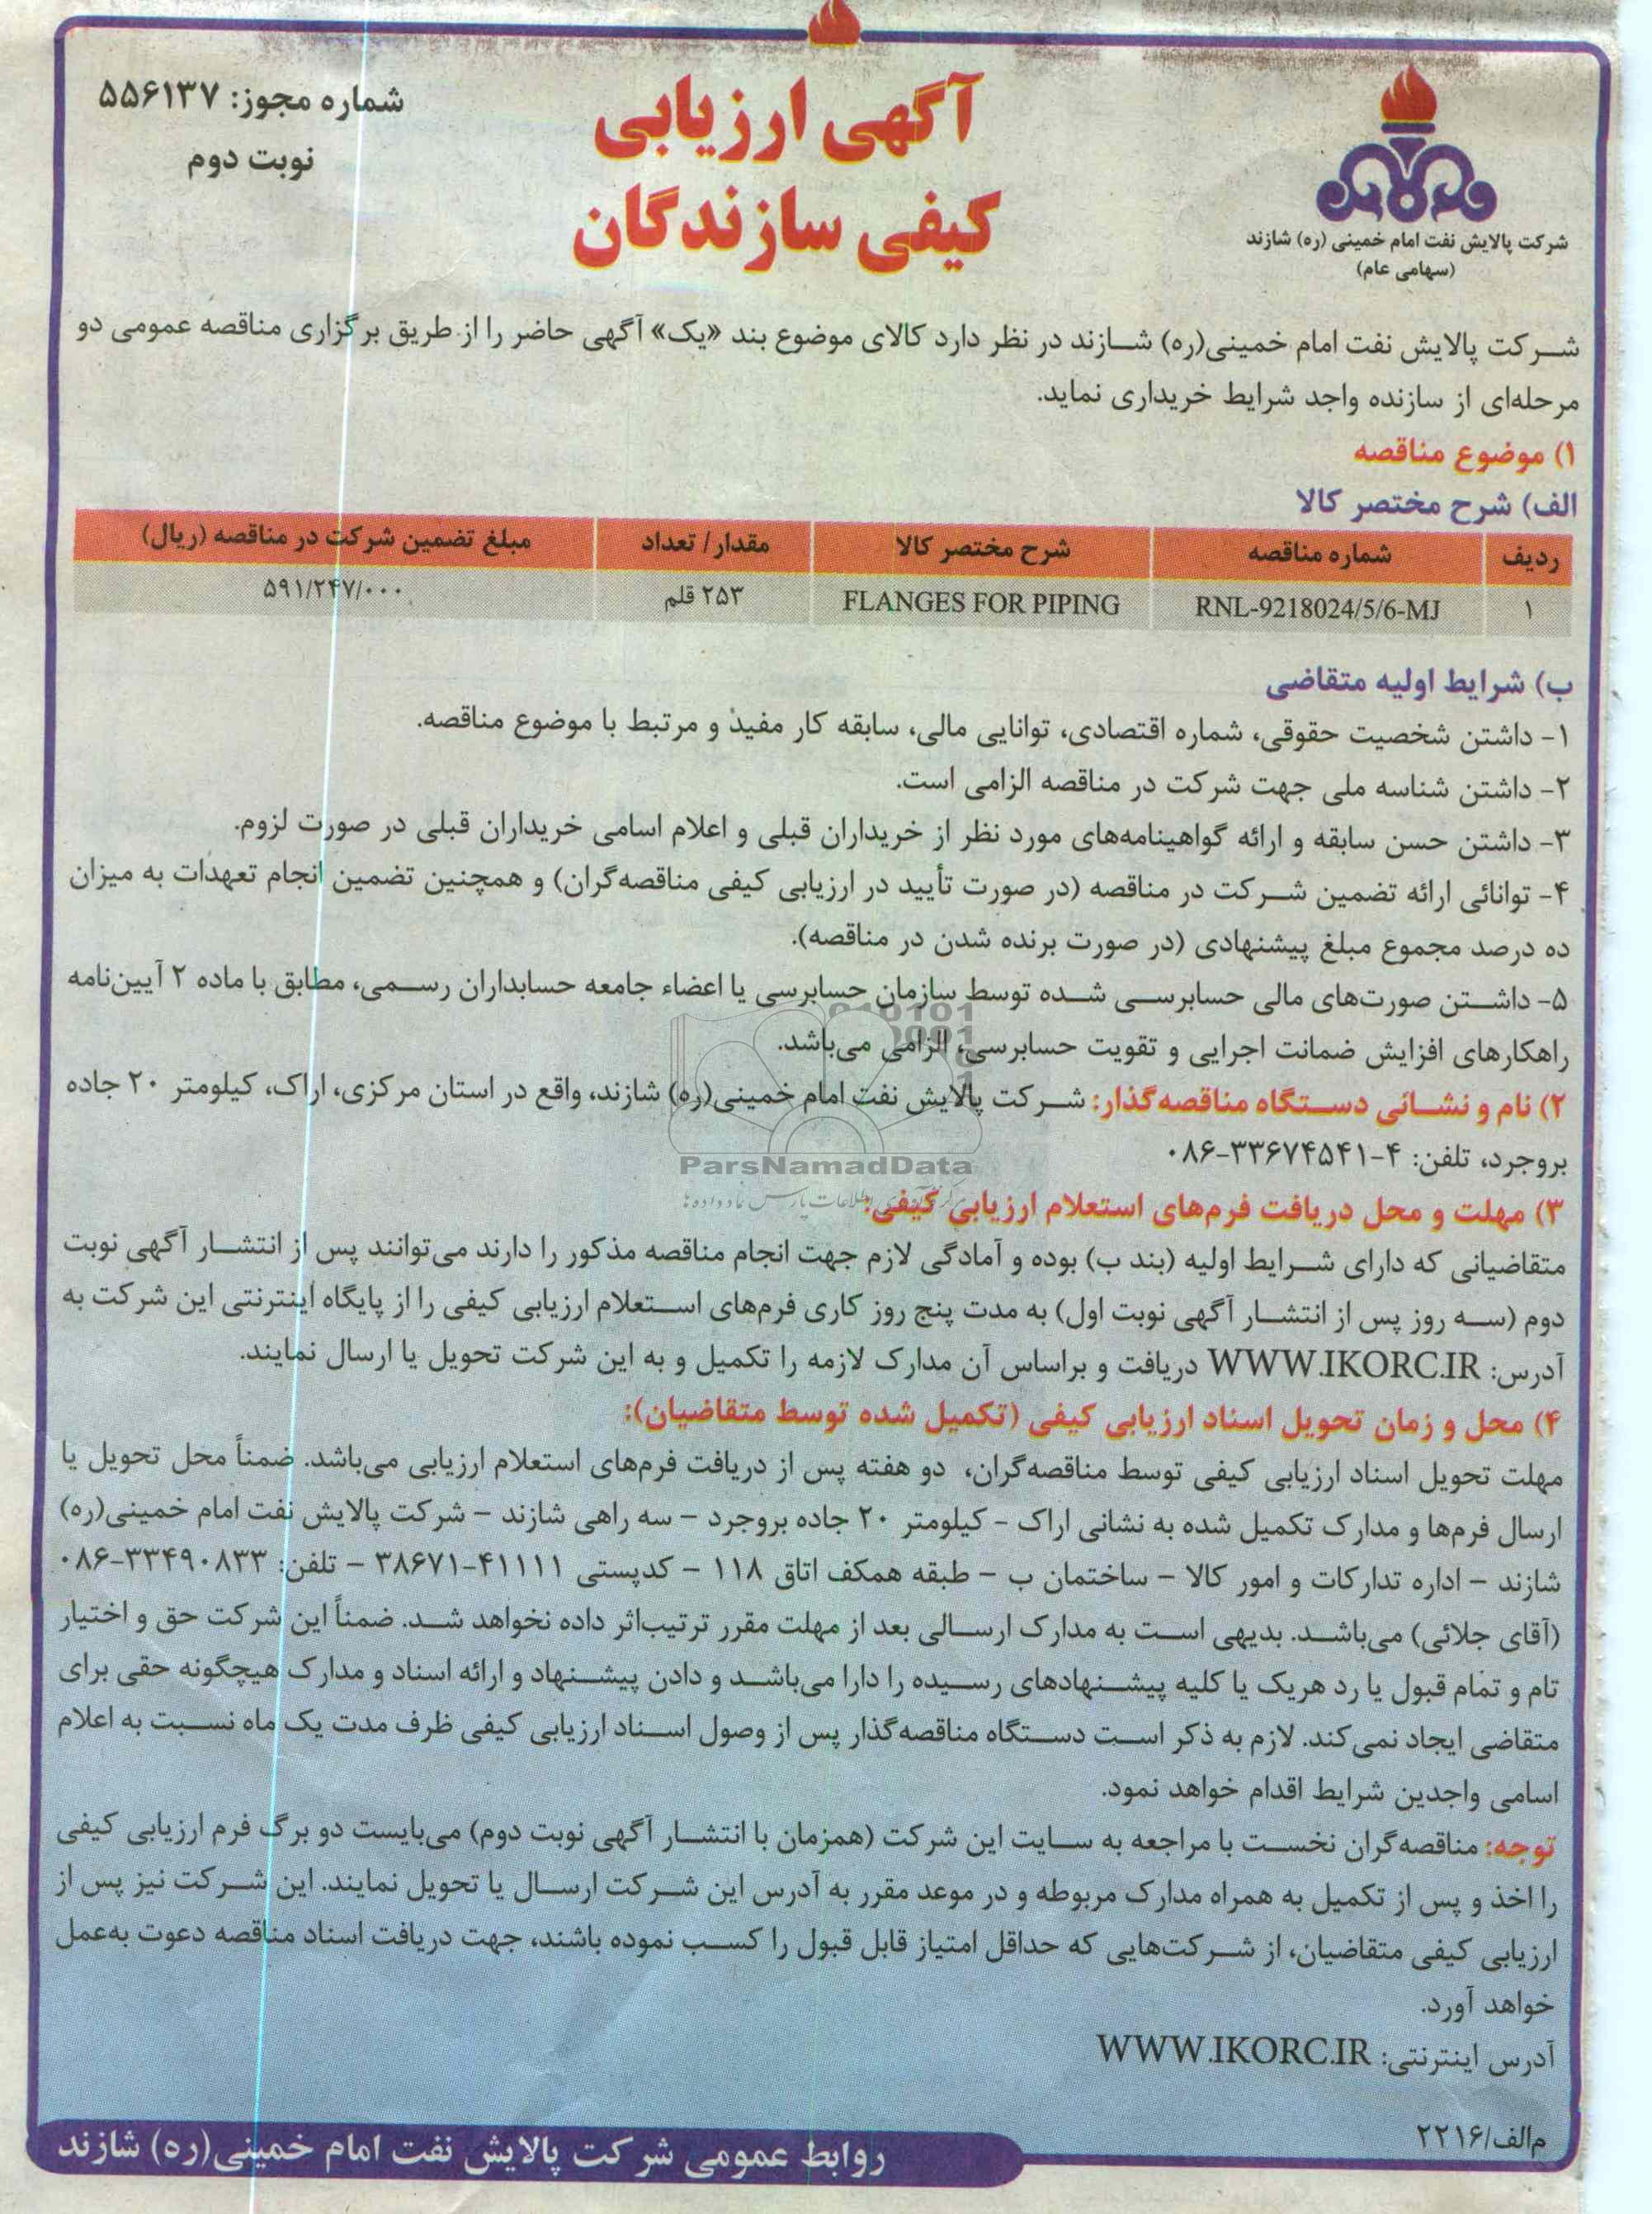 شماره مجوز: ۵۵۶۱۳۷
نوبت دوم
آگهی ارزیابی
کیفی سازندگان
شرکت پالایش نفت امام خمینی (ره) شازند
(سهامی عام)
شرکت پالایش نفت امام خمینی(ره) شازند در نظر دارد کالای موضوع بند «یک» آگهی حاضر را از طریق برگزاری مناقصه عمومی دو
مرحله‌ای از سازنده واجد شرایط خریداری نماید.
۱) موضوع مناقصه
الف) شرح مختصر کالا
ردیف شماره مناقصه شرح مختصر کالا مقدار/ تعداد مبلغ تضمین شرکت در مناقصه (ریال)
۱ RNL-9218024/5/6-MJ FLANGES FOR PIPING ۲۵۳ قلم ۵۹۱/۲۴۷/۰۰۰
ب) شرایط اولیه متقاضی
۱- داشتن شخصیت حقوقی، شماره اقتصادی، توانایی مالی، سابقه کار مفید و مرتبط با موضوع مناقصه.
۲- داشتن شناسه ملی جهت شرکت در مناقصه الزامی است.
۳- داشتن حسن سابقه و ارائه گواهینامه‌های مورد نظر از خریداران قبلی و اعلام اسامی خریداران قبلی در صورت لزوم.
۴- توانائی ارائه تضمین شرکت در مناقصه (در صورت تأیید در ارزیابی کیفی مناقصه‌گران) و همچنین تضمین انجام تعهدات به میزان
ده درصد مجموع مبلغ پیشنهادی (در صورت برنده شدن در مناقصه).
۵- داشتن صورت‌های مالی حسابرسی شده توسط سازمان حسابرسی یا اعضاء جامعه حسابداران رسمی، مطابق با ماده ۲ آیین‌نامه
راهکارهای افزایش ضمانت اجرایی و تقویت حسابرسی، الزامی می‌باشد.
۲) نام و نشانی دستگاه مناقصه‌گذار: شرکت پالایش نفت امام خمینی(ره) شازند، واقع در استان مرکزی، اراک، کیلومتر ۲۰ جاده
بروجرد، تلفن: ۴-۳۳۶۷۴۵۴۱-۰۸۶
ParsNamadData
۳) مهلت و محل دریافت فرم‌های استعلام ارزیابی کیفی:
متقاضیانی که دارای شرایط اولیه (بند ب) بوده و آمادگی لازم جهت انجام مناقصه مذکور را دارند می‌توانند پس از انتشار آگهی نوبت
دوم (سه روز پس از انتشار آگهی نوبت اول) به مدت پنج روز کاری فرم‌های استعلام ارزیابی کیفی را از پایگاه اینترنتی این شرکت به
آدرس: WWW.IKORC.IR دریافت و براساس آن مدارک لازمه را تکمیل و به این شرکت تحویل یا ارسال نمایند.
۴) محل و زمان تحویل اسناد ارزیابی کیفی (تکمیل شده توسط متقاضیان):
مهلت تحویل اسناد ارزیابی کیفی توسط مناقصه‌گران، دو هفته پس از دریافت فرم‌های استعلام ارزیابی می‌باشد. ضمناً محل تحویل یا
ارسال فرم‌ها و مدارک تکمیل شده به نشانی اراک - کیلومتر ۲۰ جاده بروجرد - سه راهی شازند - شرکت پالایش نفت امام خمینی(ره)
شازند - اداره تدارکات و امور کالا - ساختمان ب - طبقه همکف اتاق ۱۱۸ - کدپستی ۴۱۱۱۱-۳۸۶۷۱ - تلفن: ۳۳۴۹۰۸۳۳-۰۸۶
(آقای جلائی) می‌باشد. بدیهی است به مدارک ارسالی بعد از مهلت مقرر ترتیب‌اثر داده نخواهد شد. ضمناً این شرکت حق و اختیار
تام و تمام قبول یا رد هریک یا کلیه پیشنهادهای رسیده را دارا می‌باشد و دادن پیشنهاد و ارائه اسناد و مدارک هیچگونه حقی برای
متقاضی ایجاد نمی‌کند. لازم به ذکر است دستگاه مناقصه‌گذار پس از وصول اسناد ارزیابی کیفی ظرف مدت یک ماه نسبت به اعلام
اسامی واجدین شرایط اقدام خواهد نمود.
توجه: مناقصه‌گران نخست با مراجعه به سایت این شرکت (همزمان با انتشار آگهی نوبت دوم) می‌بایست دو برگ فرم ارزیابی کیفی
را اخذ و پس از تکمیل به همراه مدارک مربوطه و در موعد مقرر به آدرس این شرکت ارسال یا تحویل نمایند. این شرکت نیز پس از
ارزیابی کیفی متقاضیان، از شرکت‌هایی که حداقل امتیاز قابل قبول را کسب نموده باشند، جهت دریافت اسناد مناقصه دعوت به‌عمل
خواهد آورد.
آدرس اینترنتی: WWW.IKORC.IR
م‌الف/۲۲۱۶
روابط عمومی شرکت پالایش نفت امام خمینی(ره) شازند